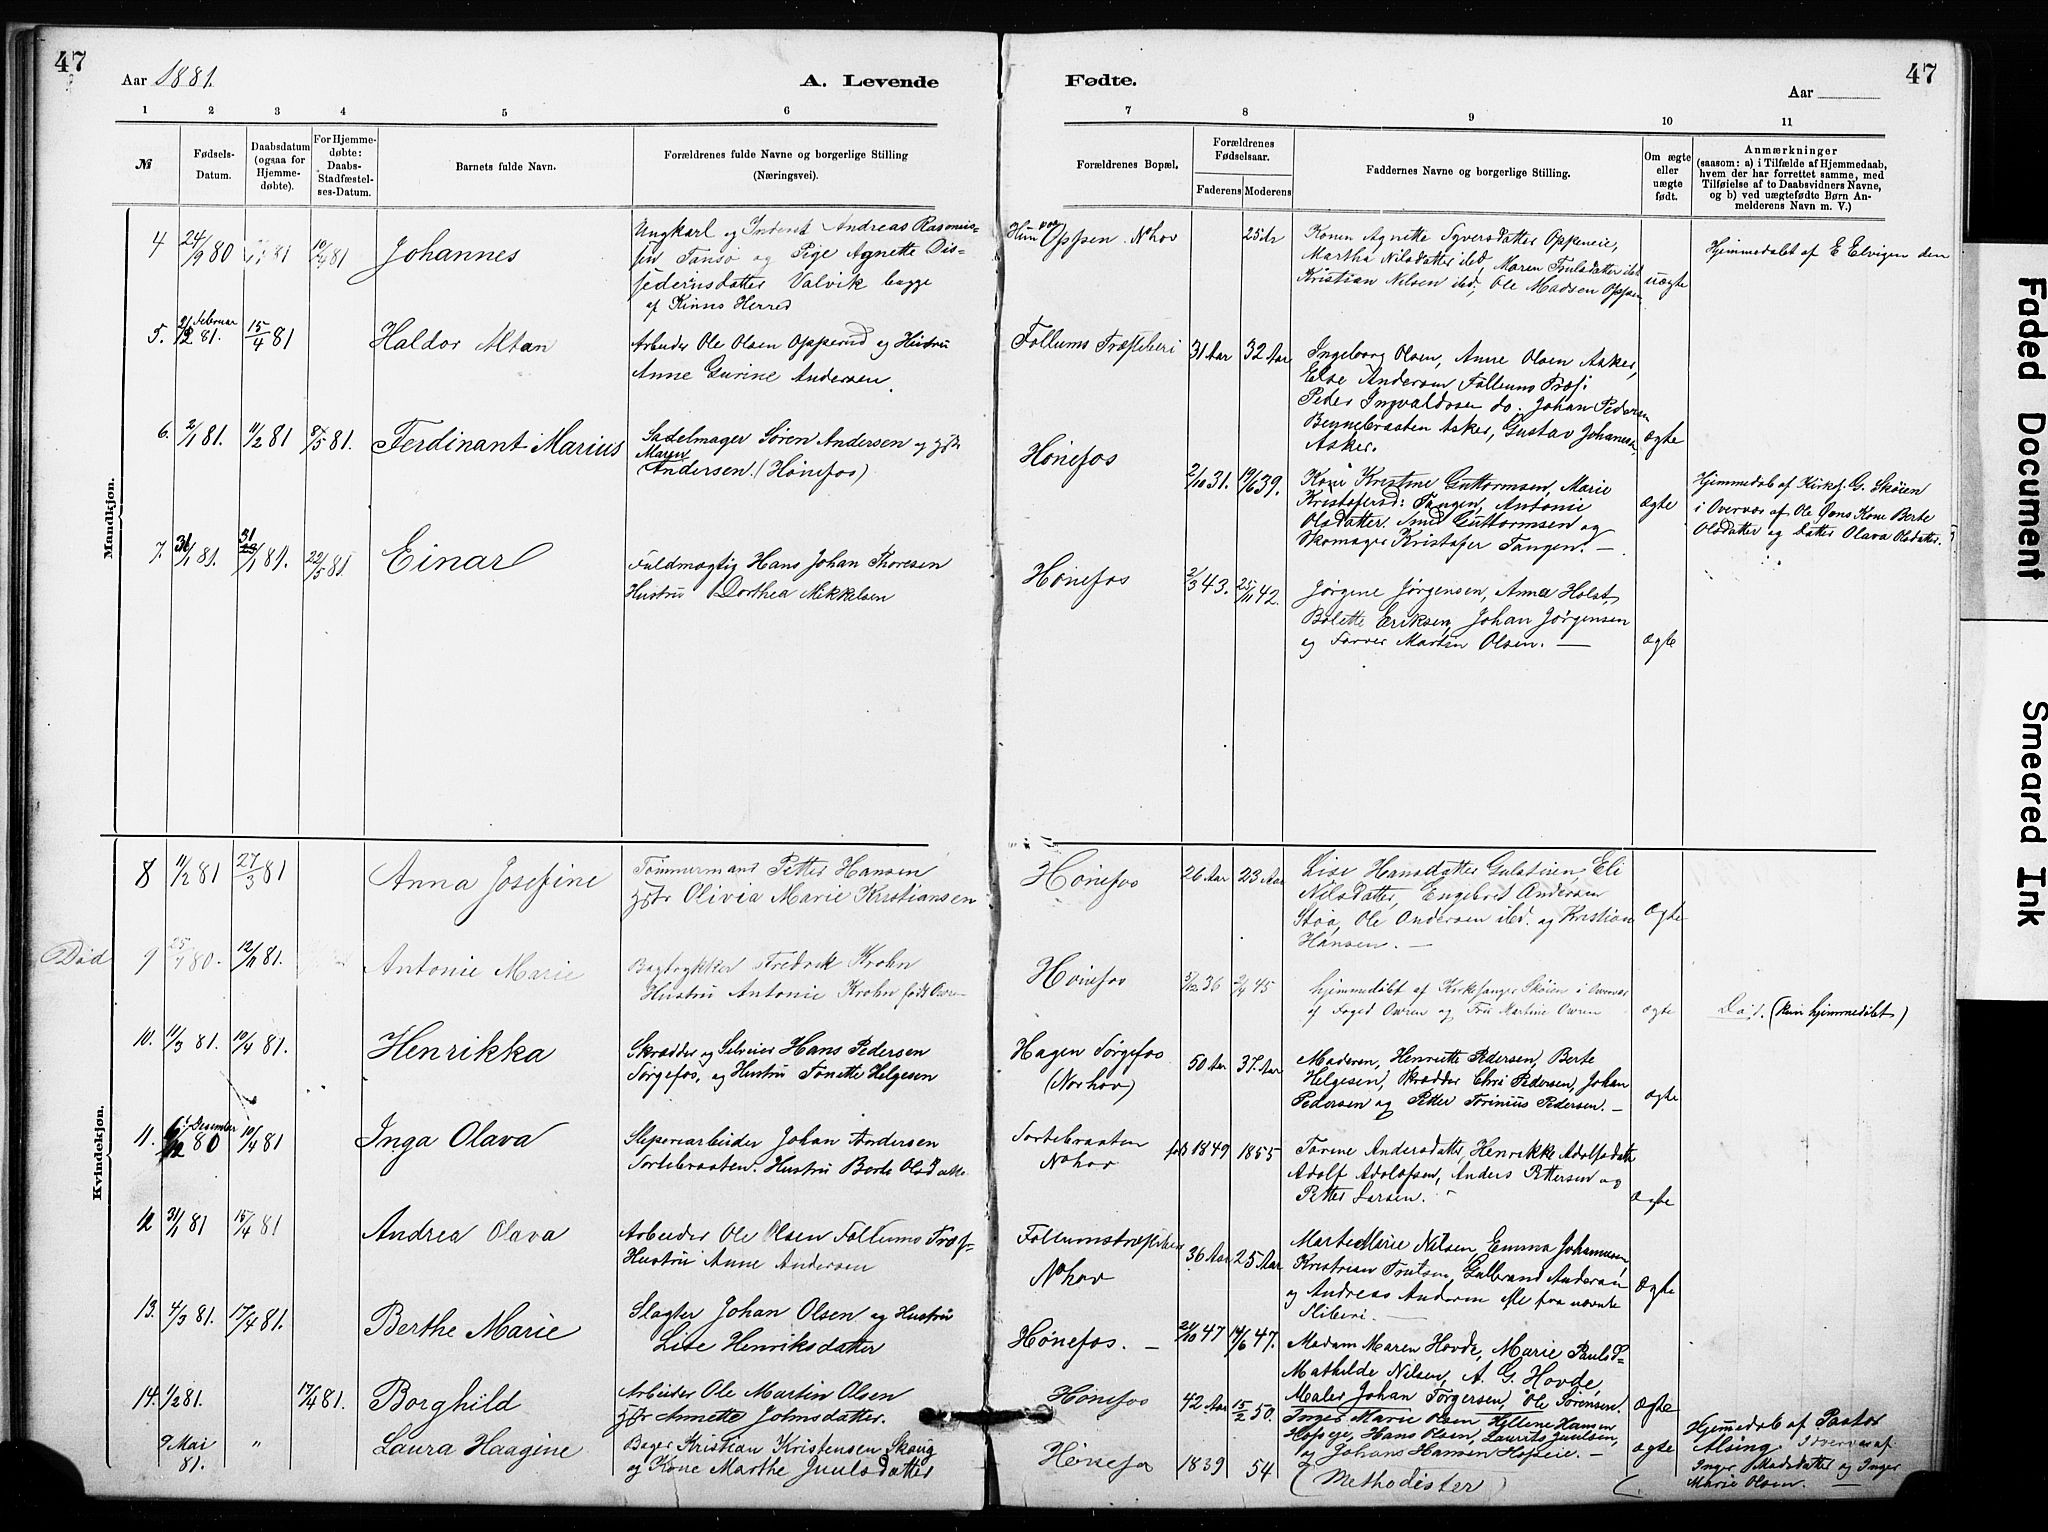 47
Aar 1881.
A. Levende
Fødte.
Aar
47
1 2 3 4 5 6 7 8 9 10 11
№
Fødsels-
Datum.
Daabsdatum
(ogsaa for
Hjemme-
døbte).
For Hjemme-
døbte:
Daabs-
Stadfæstel-
ses-Datum.
Barnets fulde Navn.
Forældrenes fulde Navne og borgerlige Stilling
(Næringsvei).
Forældrenes Bopæl.
Forældrenes
Fødselsaar.
Faderens Moderens
Faddernes Navne og borgerlige Stilling.
Om ægte
eller
uægte
født.
Anmærkninger
(saasom: a) i Tilfælde af Hjemmedaab,
hvem der har forrettet samme, med
Tilføielse af to Daabsvidners Navne,
og b) ved uægtefødte Børn An-
melderens Navn m. V.)
Mandkjøn.
4 24/9 80
Johannes
Ungkarl og Inderst Andreas Rasmus-
sen Tansø og Pige Agnette Dis-
Valvik begge
af Kinns Herred
Oppen. Nohov
25 Ar
Konen Agnette Syversdatter
Martha Nilsdatter ibd, Maren
Kristian Nilsen ibd; Ole Madsen Oppen
uægte
Hjemmedøbt af E Elvigen den
5. Februar 81. 15/4 81
Haldor Altan
Arbeider Ole Olsen Opperud og Hustru
Anne Gurine Andersen.
Follums Træsliberi
31 Aar 32 Aar
Ingeborg Olsen, Anne Olsen Asker,
Else Andersen Follums Træs:
Peder Ingvaldsen do. Johan Pedersen
Asker, Gustav Johansen
Asker.
ægte
6. 2/1 81. 11/2 81 8/5 81.
Ferdinant Marius
Sadelmager Søren Andersen og
Maren
Andersen. (Hønefos)
Hønefos
2/10 31. 19/6 39.
Kone Kristine Guttormsen, Marie
Kristofersd: Tangen, Antonie
Olsdatter. Smed Guttormsen og
Skomager Kristofer Tangen. —
ægte
Hjemmedøb af Kirkes. G. Skøien
i Overvær af Ole Jens Kone Berte
Olsdatter og Datter Olava Olsdatter.
7. 31/1 81. 31/1 81. 22/5 81.
Einar
Fuldmægtig Hans Johan Thoresen
Hustru Dorthea Mikkelsen
Hønefos
2/3 43. 25/11 42.
Jørgine Jørgensen, Anna Holst,
Bolette Eriksen, Johan Jørgensen
og Farver Martin Olsen. —
ægte
Kvindekjøn.
8 11/2 81 27/3 81
Anna Josefine
Tømmermand Petter Hansen
Olivia Marie Kristiansen
Hønefos
26 Aar 23 Aar
Lise Hansdatter Gulstuen, Eli
Nilsdatter, Engebret Andersen
Støa, Ole Andersen ibd. og Kristian
Hansen. —
ægte
Død
9 80. 12/1 81.
Antonie Marie
Bogtrykker Fredrik Krohn
Hustru Antonie Krohn født Owren
Hønefos
5/12 36 2/4 45
hjemmedøbt af Kirkesanger Skøien i Overvær
af Foged Owren og Fru Martine Owren
ægte
Død. (kun hjemmedøbt)
10. 11/3 81. 10/4 81.
Henrikka
Skrædder og Selveier Hans Pedersen
Sørgefos, og Hustru Tonette Helgesen
Hagen Sørgefos
(Norhov)
50 Aar 37. Aar
Moderen, Henriette Pedersen, Berte
Helgesen, Skrædder Chri Pedersen, Johan
Pedersen og Petter Torinius Pedersen. —
ægte
11. Desember 80 10/4 81
Inga Olava
Sliperiarbeider Johan Andersen
Sortebraaten. Hustru Berte Olsdatter
Sortebraaten
Nohov
født 1849 1855
Torine Andersdatter, Henrikke Adolfsdatter
Adolf Adolofsen, Anders Pettersen og
Petter Larsen.
ægte
12 31/1 81 15/4 81
Andrea Olava
Arbeider Ole Olsen Follums Træs-
Hustru Anne Andersen
Follumstræsliberi
Nohov
36 Aar 25 Aar
Marte Marie Nilsen, Emma Johannesen,
Kristian Knutsen, Gulbrand Andersen
og Andreas Andersen Alle fra nævnte
Sliberi. —
ægte
13. 4/3 81. 17/4 81.
Berthe Marie
Slagter Johan Olsen og Hustru
Lise Henriksdatter
Hønefos. —
21/10 47 14/6 47.
Madam Maren Hovde, Marie Paulsd-
Mathilde Nilsen, A. G. Hovde,
Maler Johan Torgersen, Ole Sørensen.
ægte
14. 1/2 81. 17/4 81.
Borghild
Arbeider Ole Martin Olsen
Annette Johnsdatter.
Hønefos
42 Aar 15/2 50.
Inger Marie Olsen, Hellene Hansen
Hofseie, Hans Olsen, Laurits Juulsen,
og Johans Hansen Hofseie. —
ægte
Hjemmedøb af Pastor
Alsing i Overvær af
Inger Madsdatter og Inger
Marie Olsen. —
9 Mai
81. „
Laura Haagine
Bager Kristian Kristensen Skoug
og Kone Marthe Juulsdatter
Hønefos
1839 54
(Methodister)
Faded Document
Smeared Ink